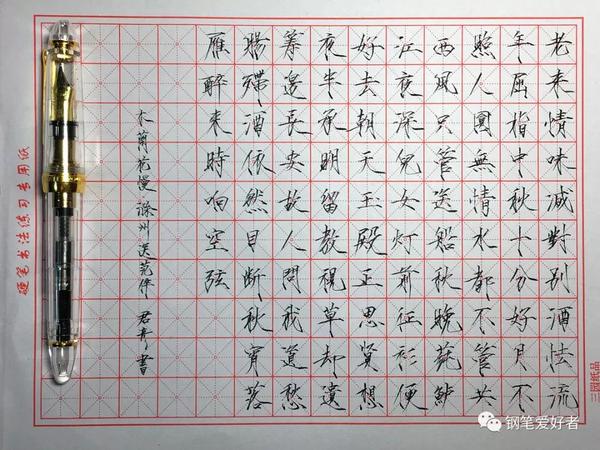 老来情味減對別酒怯流
年屈指中秋十分好月不
照人圓無情水都不管共
西風只管送船秋晚蒓鱸
江夜深兒女灯前征衫便
好去朝天玉殿正思賢想
夜半承明留教視草却遣
筹邊長安故人問我道愁
腸殢酒依然目断秋霄落
雁醉来時响空弦
木蘭花慢 滁州送范倅 君 書
硬笔书法练习专用纸
三园纸品
钢笔爱好者